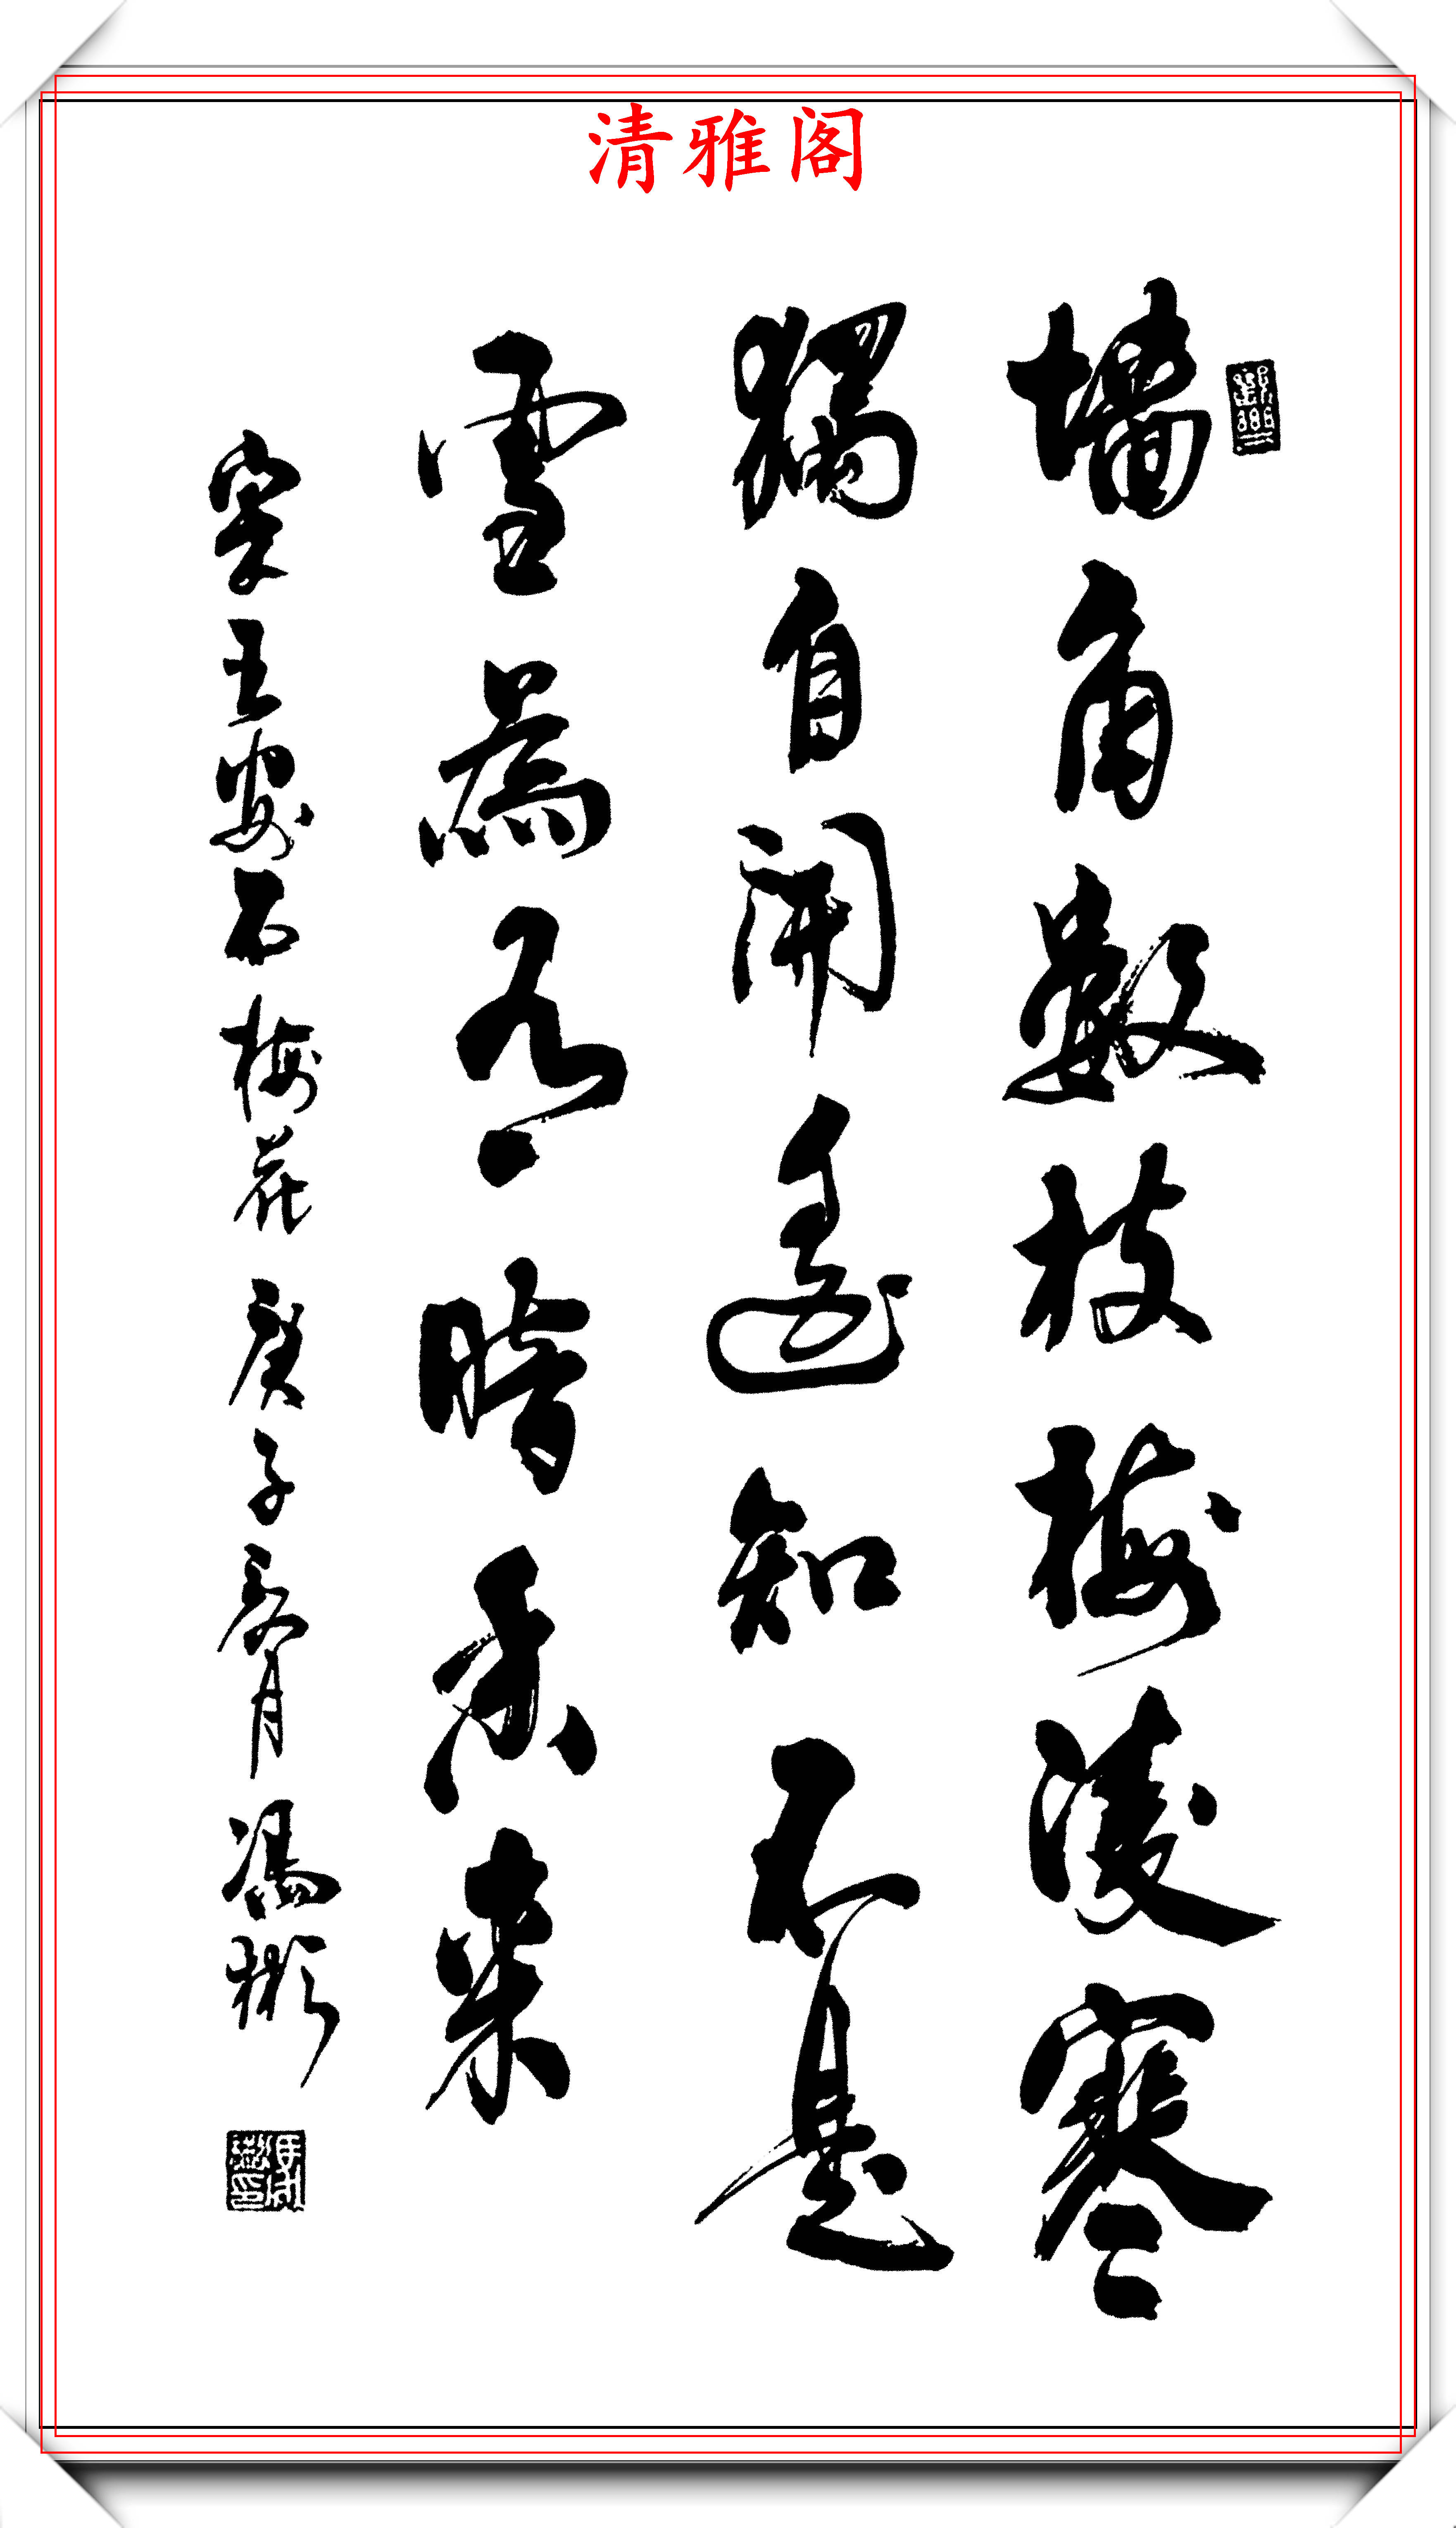 清雅阁
墙角數枝梅凌寒
獨自開遥知不是
雪為有暗香来
宋王安石梅花 庚子夏月 馮彬